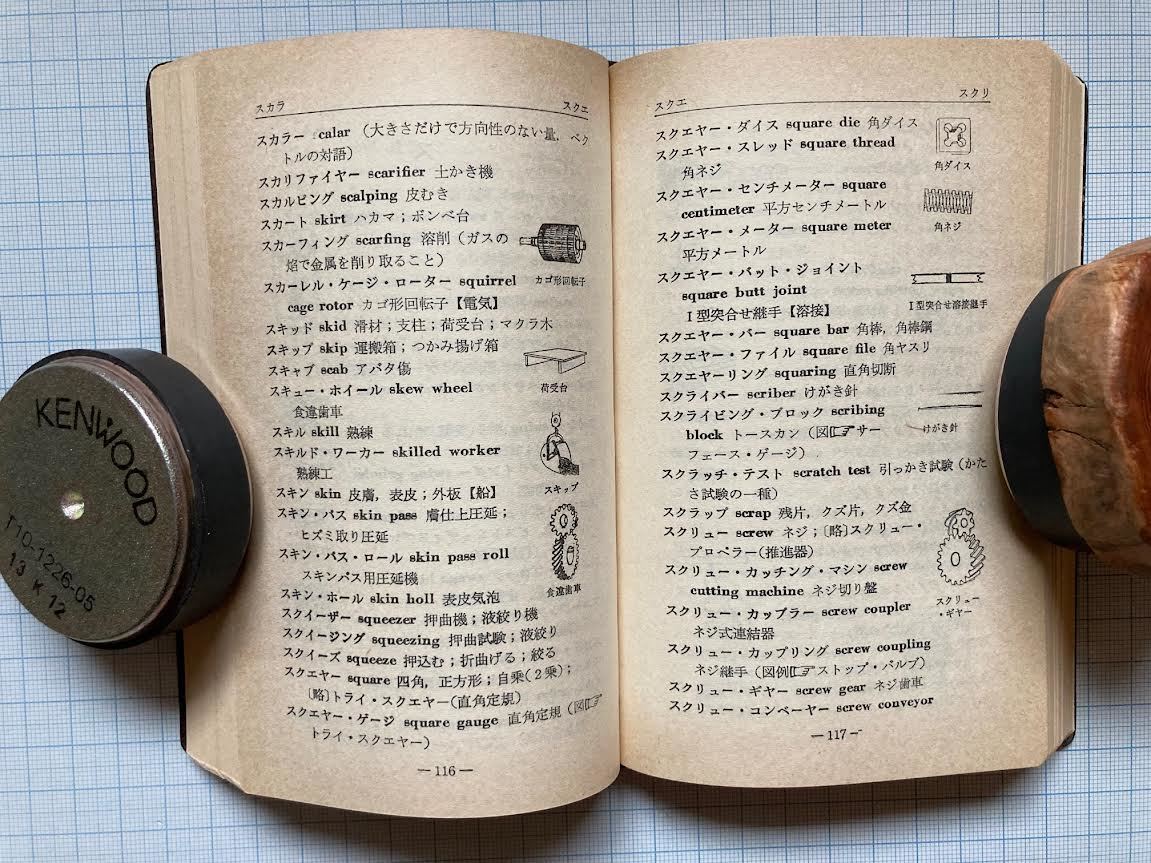 KENWOOD
T10-1226-05
13 K 12
スカラ
スクエ
スカラー scalar (大きさだけで方向性のない量. ベク
トルの対語)
スカリファイヤー scarifier 土かき機
スカルピング scalping 皮むき
スカート skirt ハカマ;ボンベ台
スカーフィング scarfing 溶削(ガスの
焰で金属を削り取ること)
スカーレル・ケージ・ローター squirrel
cage rotor カゴ形回転子【電気】
カゴ形回転子
スキッド skid 滑材;支柱;荷受台;マクラ木
スキップ skip 運搬箱;つかみ揚げ箱
スキャブ scab アバタ傷
荷受台
スキュー・ホイール skew wheel
食違歯車
スキル skill 熟練
スキルド・ワーカー skilled worker
熟練工
スキップ
スキン skin 皮膚, 表皮;外板【船】
スキン・パス skin pass 膚仕上圧延;
ヒズミ取り圧延
スキン・パス・ロール skin pass roll
スキンパス用圧延機
食違歯車
スキン・ホール skin holl 表皮気泡
スクイーザー squeezer 押曲機;液絞り機
スクイージング squeezing 押曲試験;液絞り
スクイーズ squeeze 押込む;折曲げる;絞る
スクエヤー square 四角, 正方形;自乗(2乗);
〔略〕トライ・スクエヤー(直角定規)
スクエヤー・ゲージ square gauge 直角定規(図☞
トライ・スクエヤー)
—116—
スクエ
スクリ
スクエヤー・ダイス square die 角ダイス
スクエヤー・スレッド square thread
角ネジ
角ダイス
スクエヤー・センチメーター square
centimeter 平方センチメートル
角ネジ
スクエヤー・メーター square meter
平方メートル
スクエヤー・バット・ジョイント
square butt joint
I型突合せ継手【溶接】
I型突合せ溶接継手
スクエヤー・バー square bar 角棒, 角棒鋼
スクエヤー・ファイル square file 角ヤスリ
スクエヤーリング squaring 直角切断
スクライバー scriber けがき針
スクライビング・ブロック scribing
block トースカン(図☞サー
フェース・ゲージ)
けがき針
スクラッチ・テスト scratch test 引っかき試験(かた
さ試験の一種)
スクラップ scrap 残片, クズ片, クズ金
スクリュー screw ネジ;〔略〕スクリュー・
プロペラー(推進器)
スクリュー・カッチング・マシン screw
cutting machine ネジ切り盤
スクリュー
・ギヤー
スクリュー・カップラー screw coupler
ネジ式連結器
スクリュー・カップリング screw coupling
ネジ継手(図例☞ストップ・バルブ)
スクリュー・ギヤー screw gear ネジ歯車
スクリュー・コンベーヤー screw conveyor
—117—